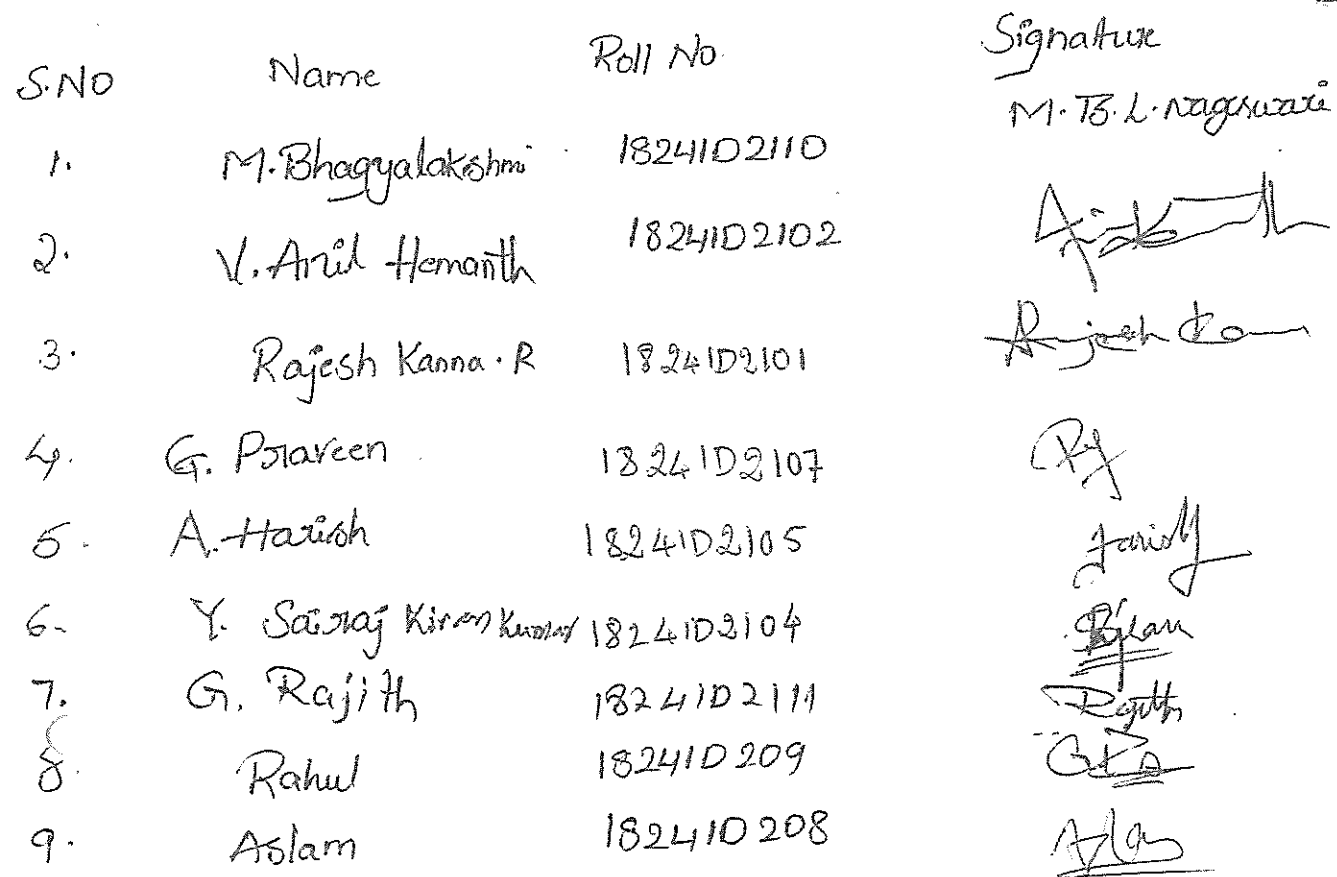 S.NO Name Roll No. Signature
M.B.L.nageswari
1. M.Bhagyalakshmi 18241D2110
2. V. Anil Hemanth 18241D2102
3. Rajesh Kanna.R 18241D2101 Rajesh Kan
4. G. Praveen 18241D2107
5. A. Harish 18241D2105 Harish
6. Y. Sairaj Kiran Kumar 18241D2104
7. G. Rajith 18241D2111 Rajith
8. Rahul 18241D209
9. Aslam 18241D208